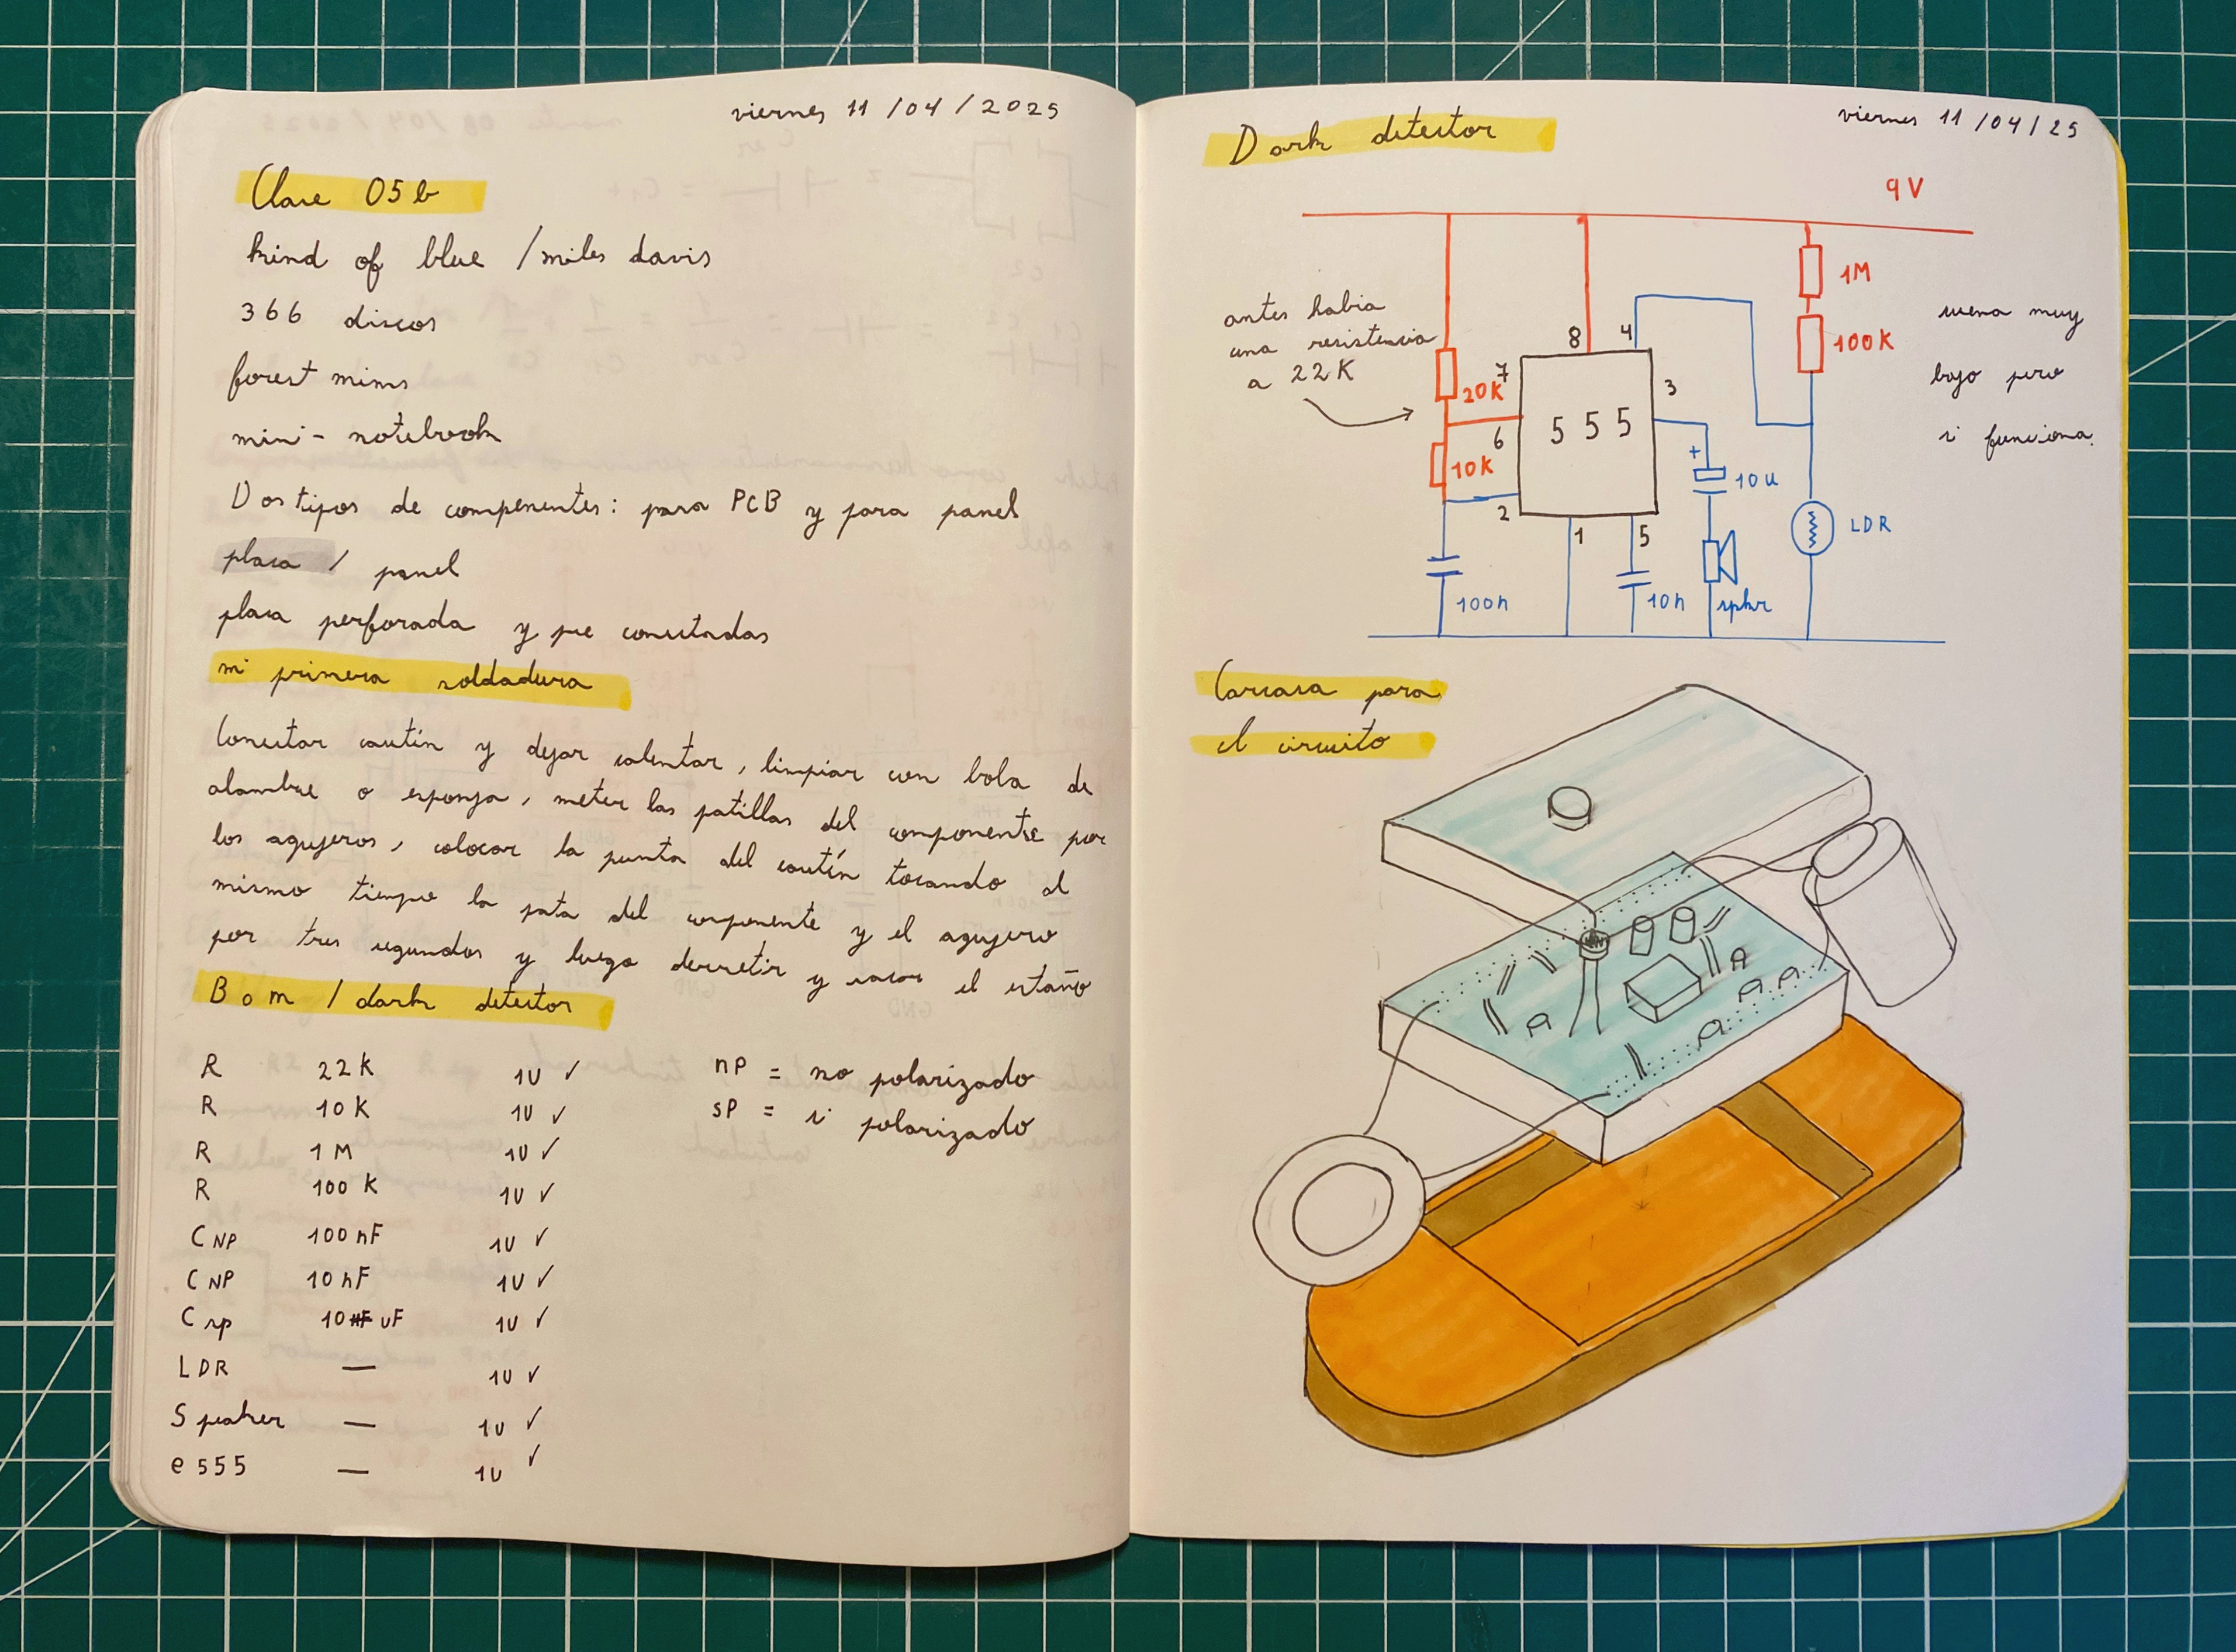 viernes 11/04/2025
Clase 05b
kind of blue / miles davis
366 discos
forest mims
mini-notebook
Dos tipos de componentes: para PCB y para panel
placa / panel
placa perforada y pre conectadas
mi primera soldadura
Conectar cautín y dejar calentar, limpiar con bola de
alambre o esponja, meter las patillas del componente por
los agujeros, colocar la punta del cautín tocando al
mismo tiempo la pata del componente y el agujero
por tres segundos y luego derretir y sacar el estaño
Bom / dark detector
R 22K 1U ✓
R 10K 1U ✓
R 1M 1U ✓
R 100K 1U ✓
CNP 100nF 1U ✓
CNP 10nF 1U ✓
Csp 10uF 1U ✓
LDR — 1U ✓
Speaker — 1U ✓
e555 — 1U ✓
nP = no polarizado
sP = si polarizado
viernes 11/04/25
Dark detector
9V
1M
100K
antes habia
una resistencia
a 22K
suena muy
bajo pero
si funciona.
8 4
7
20K
3
6
555
10K
+
10u
2
LDR
1 5
100n
10n
spkr
Carcasa para
el circuito